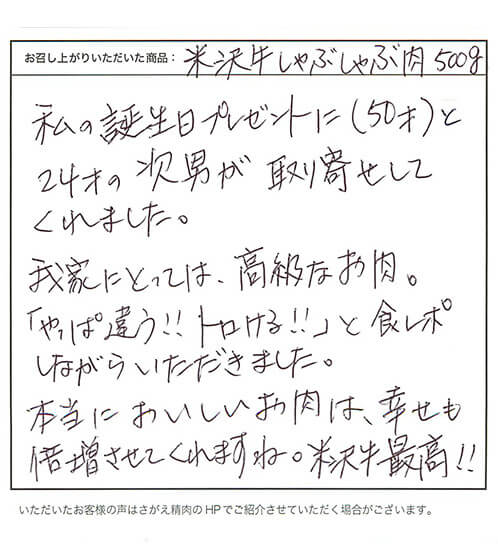 お召し上がりいただいた商品： 米沢牛しゃぶしゃぶ肉500g
私の誕生日プレゼントに(50才)と
24才の次男が取り寄せして
くれました。
我家にとっては、高級なお肉。
「やっぱ違う!!トロける!!」と食レポ
しながらいただきました。
本当においしいお肉は、幸せも
倍増させてくれますね。米沢牛最高!!
いただいたお客様の声はさがえ精肉のHPでご紹介させていただく場合がございます。